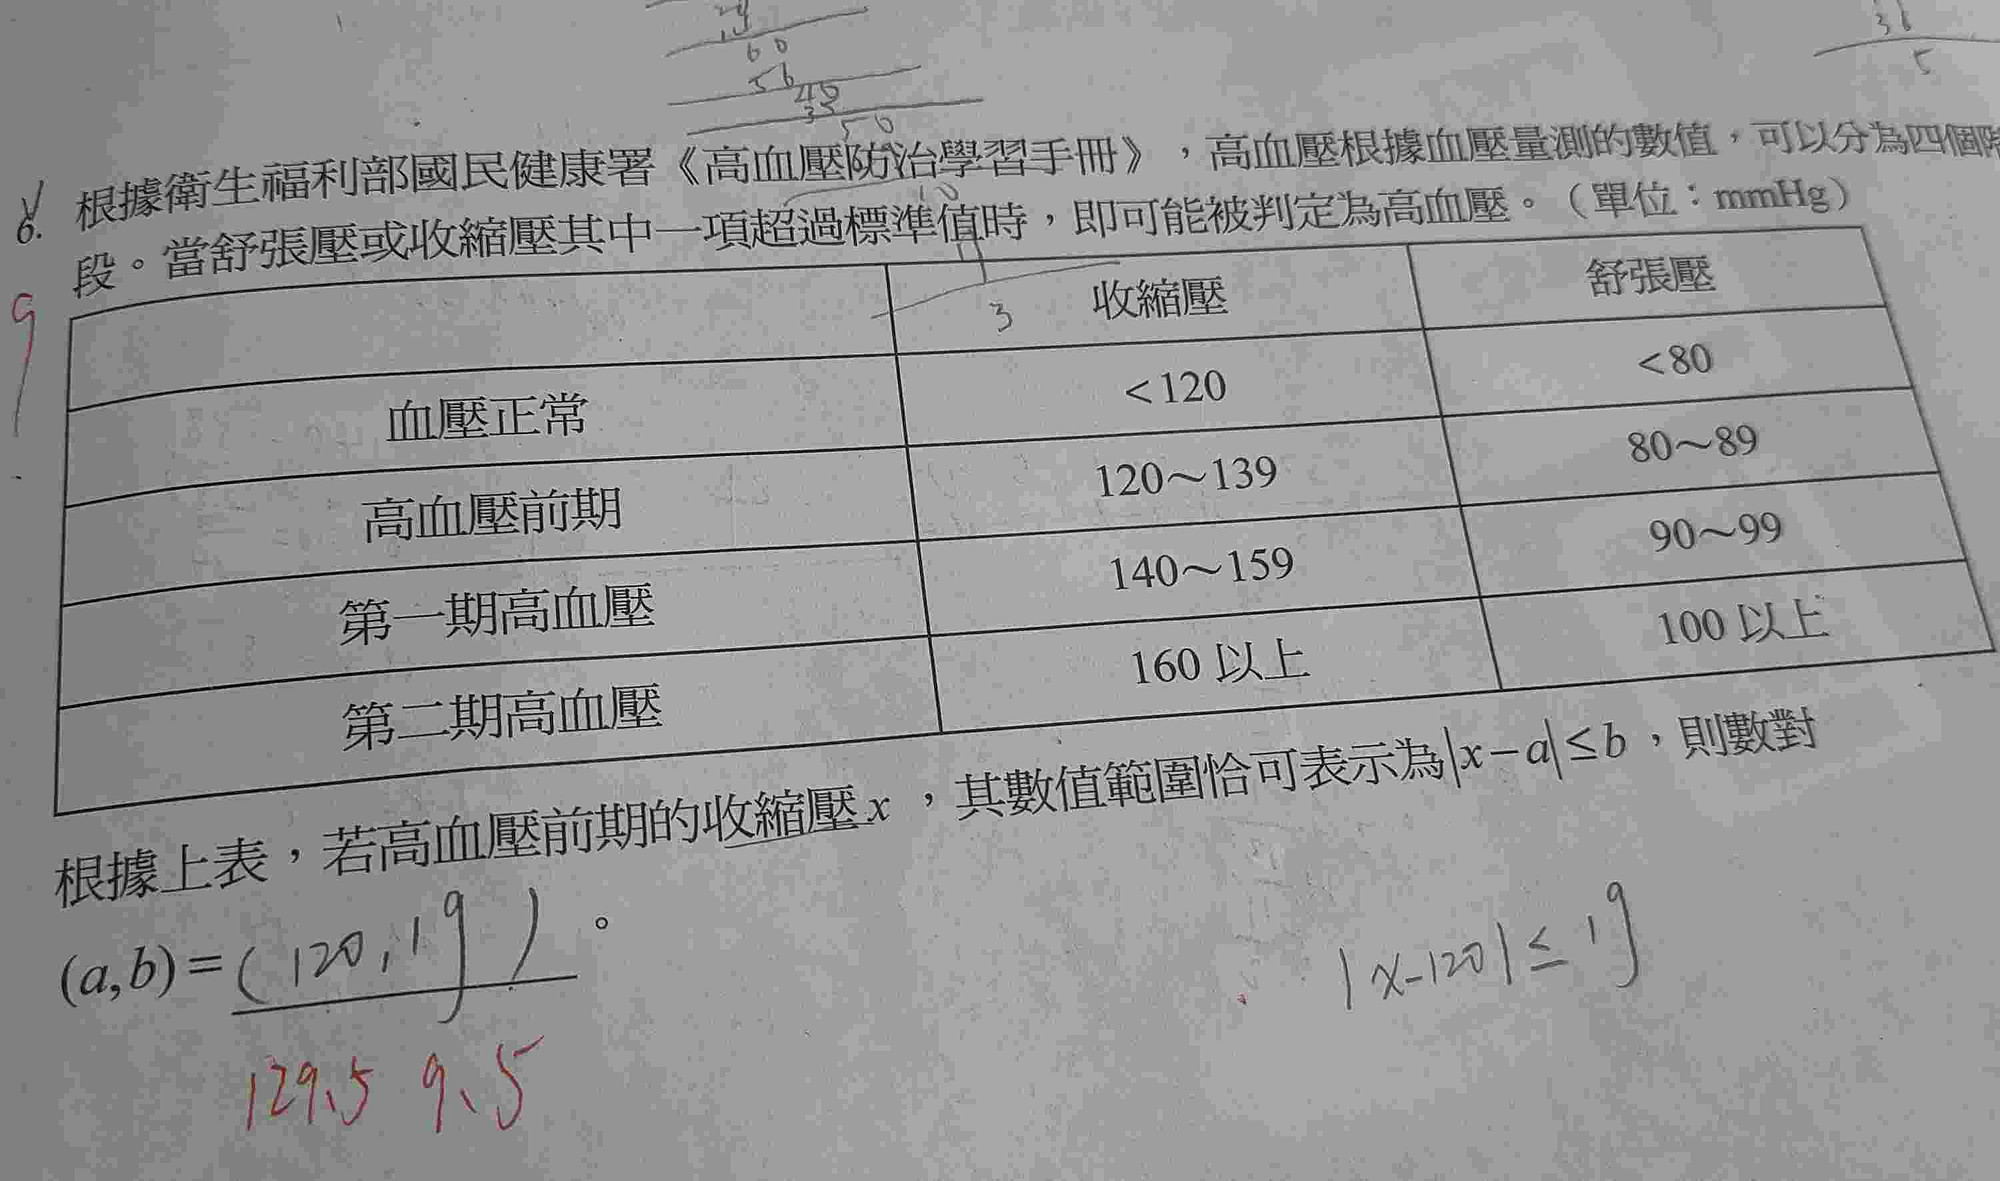 24
60
56
40
35
50
36
5
6. 根據衛生福利部國民健康署《高血壓防治學習手冊》，高血壓根據血壓量測的數值，可以分為四個階
段。當舒張壓或收縮壓其中一項超過標準值時，即可能被判定為高血壓。（單位：mmHg）
9
3 收縮壓 舒張壓
血壓正常 <120 <80
高血壓前期 120～139 80～89
第一期高血壓 140～159 90～99
第二期高血壓 160 以上 100 以上
根據上表，若高血壓前期的收縮壓 x ，其數值範圍恰可表示為|x−a|≤b，則數對
(a,b)=(120,19)。
|x-120|≤19
129.5 9.5